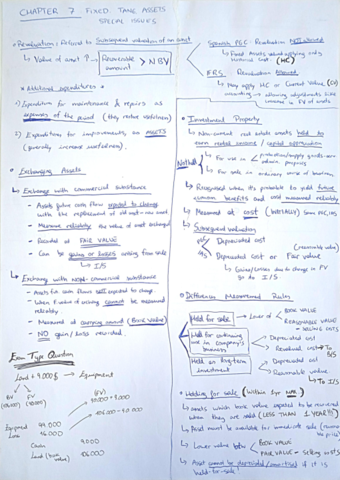 CHAPTER 7 FIXED TANG. ASSETS
SPECIAL ISSUES
Revaluation: Referred to Subsequent valuation of an asset
↳ Value of asset ↑ Recoverable amount > NBV
Additional expenditures
1) Expenditures for maintenance & repairs as
expenses of the period (they restore usefulness)
2) Expenditures for improvements, as ASSETS
(generally increase usefulness).
Exchanging Assets
↳ Exchange with commercial substance
- Assets future cash flows expect to change
with the replacement of old asset → new asset
- Measured reliability the value of asset exchanged
- Recorded at FAIR VALUE
- Can be gains or losses arising from sale
↳ I/S
↳ Exchanging with NON-commercial substance
- Assets fut. cash flows not expected to change
- When F. Value of exchange cannot be measured
reliably
- Measured at carrying amount (Book value)
- NO gain / loss recorded.
Exam Type Question
Land + 9.000 $ → Equipment
Equipment
Loss
Cash 9.000
Land (book value)
Spanish PGC: Revaluation NOT allowed
↳ Fixed Assets valued applying only
Historical Cost (HC)
IFRS: Revaluation Allowed
↳ May apply HC or Current Value (CV)
accounting → allowing adjustments like
increase in FV of assets
Investment Property
↳ Non-current real estate assets held to
earn rental incomes / capital appreciation
Not held
↳ For use in production/supply goods or
admin. purposes
↳ For sale in ordinary course of business
↳ Recognised when it's probable to yield future
economic benefits and cost measured reliably
↳ Measured at cost (INITIALLY) both PGC, IFRS
↳ Subsequent valuation
PGC Depreciated cost
IFRS Depreciated cost or Fair value
↳ Gains/Losses due to change in FV
go to I/S
Different Measurement Rules
Held for sale → Lower of
BOOK VALUE
REASONABLE VALUE - SELLING COSTS
Held for continuing
use in company's
business
Depreciated cost
Revalued cost → To B/S
Held as long-term
investment
Depreciated cost
Reasonable value
→ To I/S
Holding for sale (Within 1yr MAX)
↳ assets which book value expected to be recovered
when they are sold (LESS THAN 1 YEAR!!!)
↳ Asset must be available for immediate sale
↳ Lower value btw
BOOK VALUE
FAIR VALUE - selling costs
↳ Asset cannot be depreciated/amortised if it is
held-for-sale!